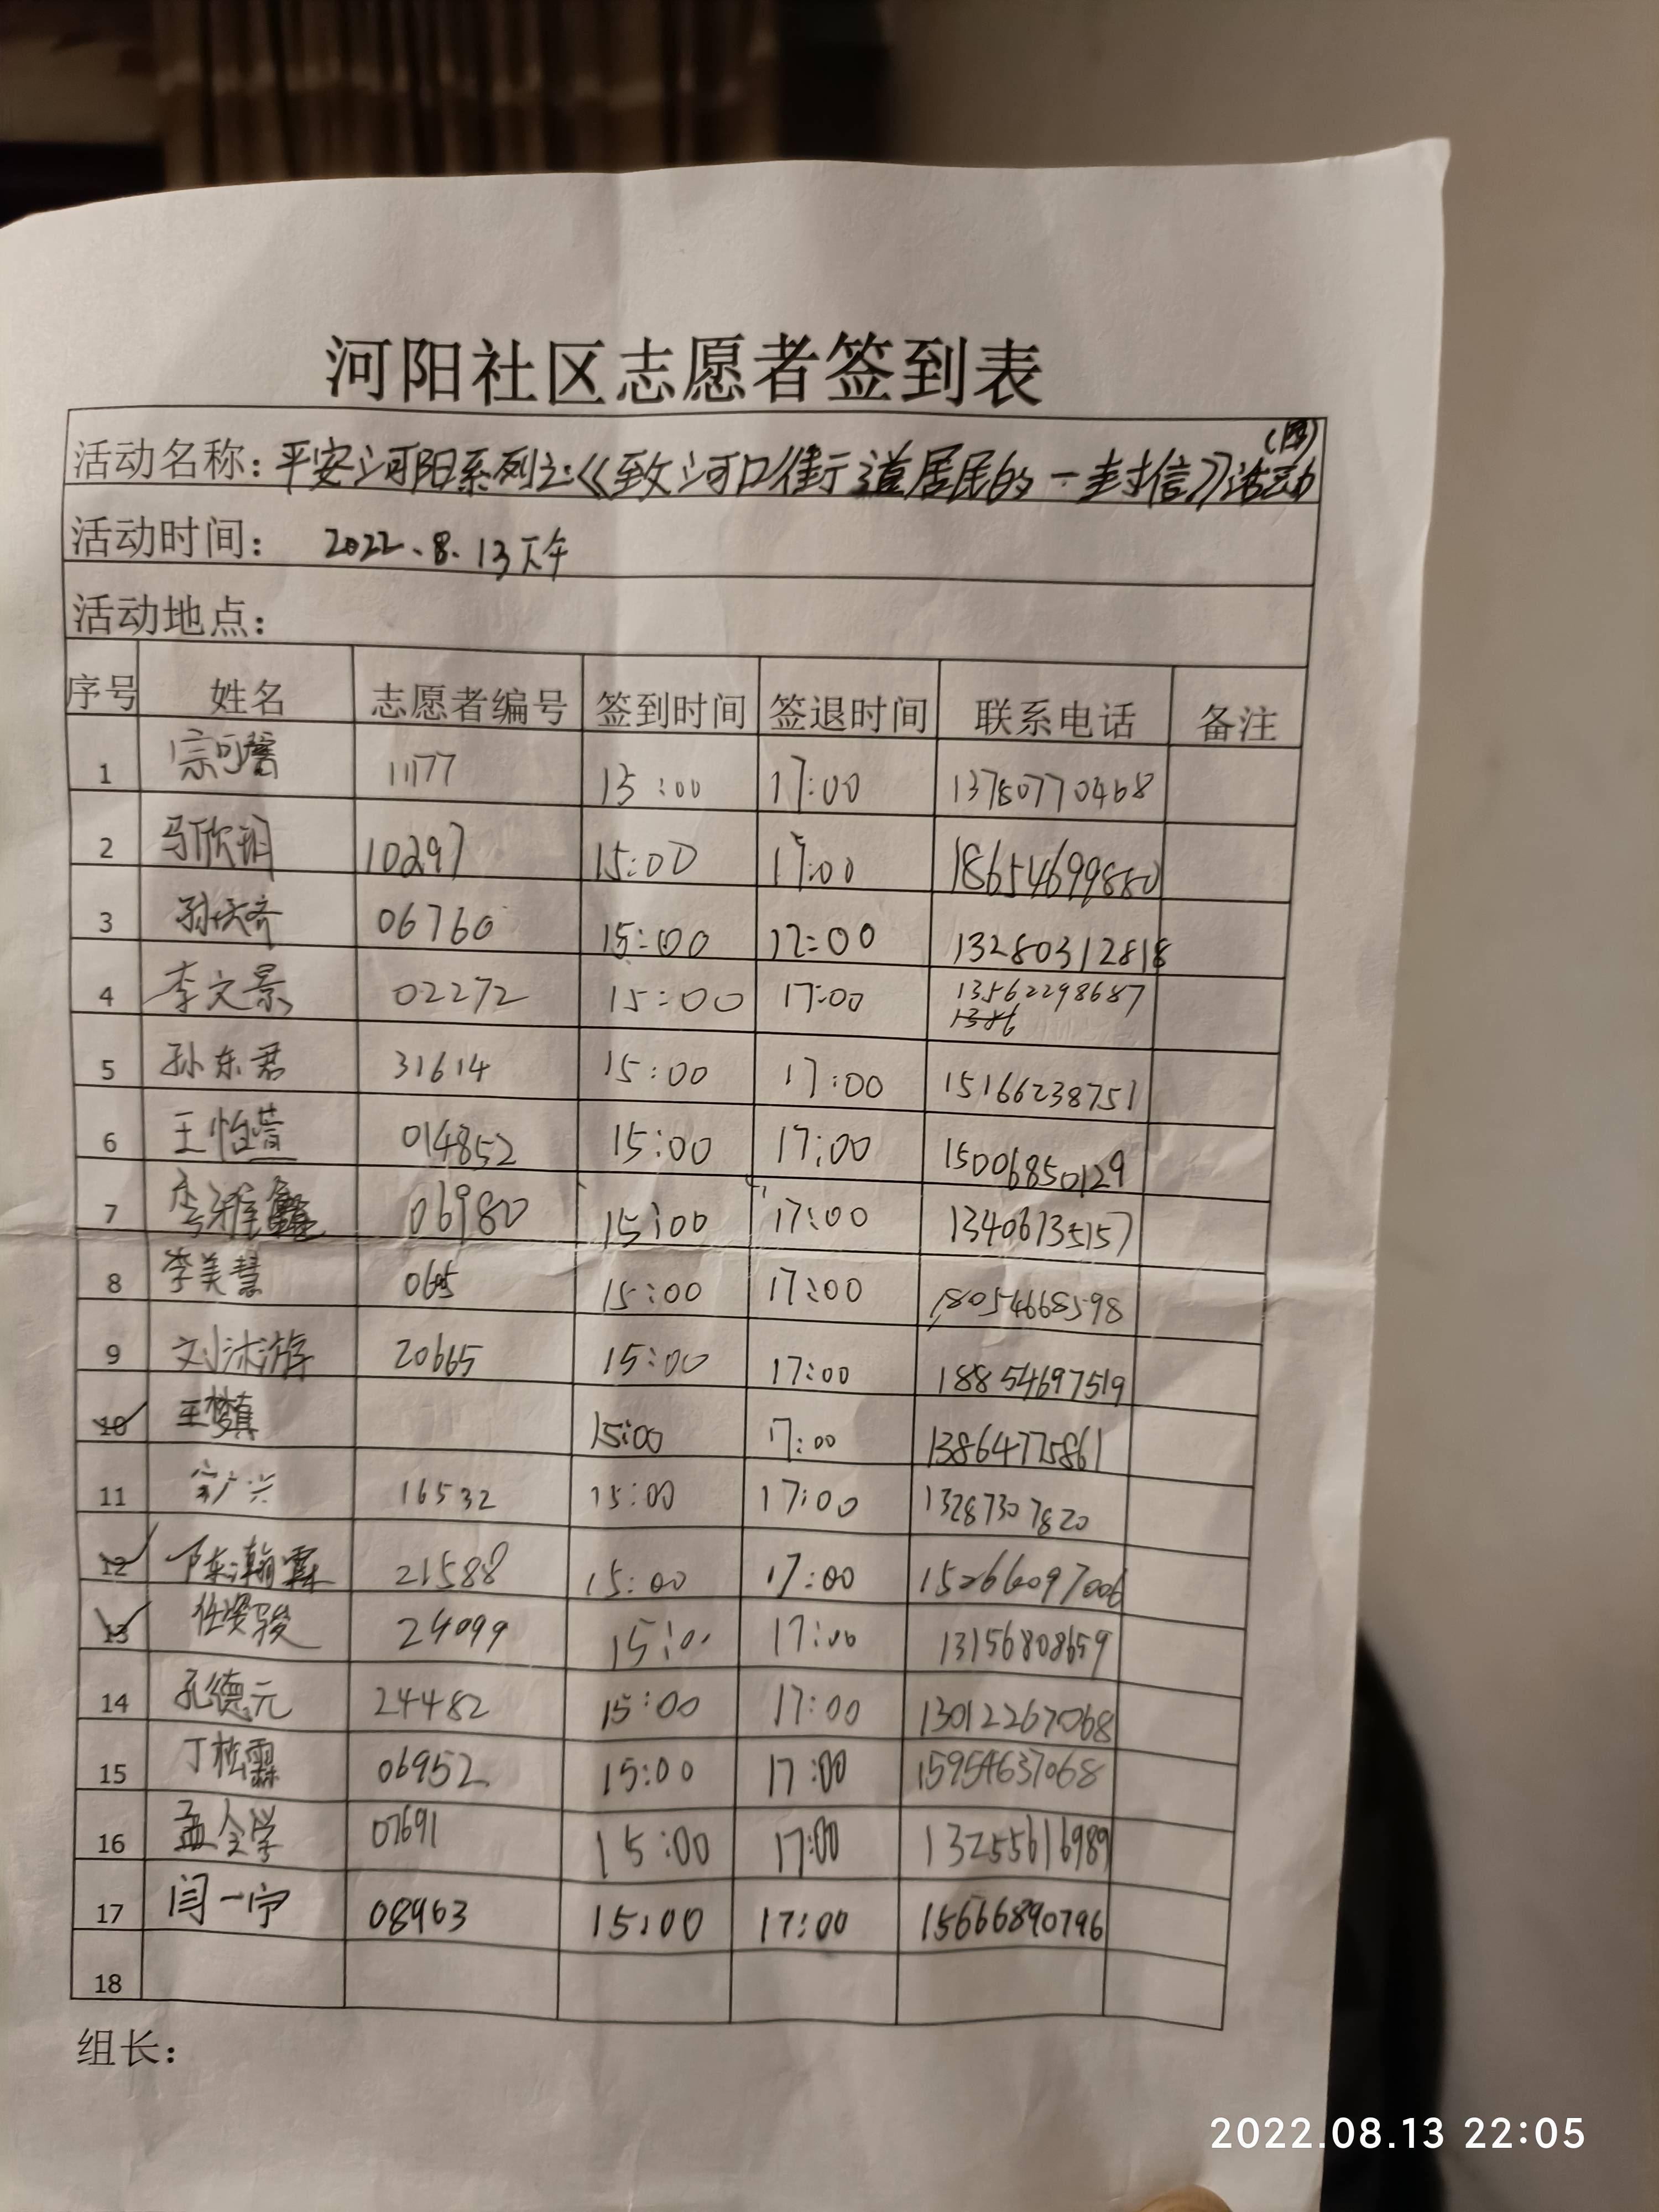 河阳社区志愿者签到表
活动名称：平安河阳系列之：《致河口街道居民的一封信》活动（四）
活动时间： 2022.8.13下午
活动地点：
序号 姓名 志愿者编号 签到时间 签退时间 联系电话 备注
1 宗可馨 11177 15:00 17:00 13780770468
2 马欣玥 10297 15:00 17:00 18654699880
3 孙天齐 06760 15:00 17:00 13280312818
4 李文景 02272 15:00 17:00 13562298687
1386
5 孙东君 31614 15:00 17:00 15166238751
6 王怡 014852 15:00 17:00 15006850129
7 李雅鑫 06980 15:00 17:00 13406135157
8 李美慧 15:00 17:00 18054668598
9 刘沐游 20665 15:00 17:00 18854697519
10 王梦真 15:00 17:00 13864775861
11 16532 15:00 17:00 13287307820
12 陈瀚霖 21588 15:00 17:00 15266097006
13 任奕骏 24099 15:00 17:00 13156808659
14 孔德元 24482 15:00 17:00 13012267068
15 丁松霖 06952 15:00 17:00 15954637068
16 孟令学 07691 15:00 17:00 13255616989
17 闫一宁 08963 15:00 17:00 15666890796
18
组长：
2022.08.13 22:05